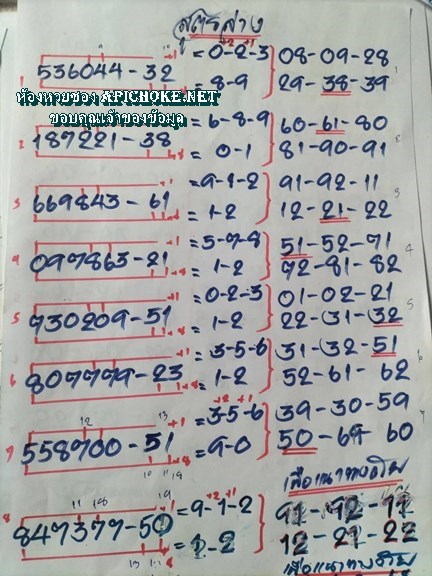 สูตรล่าง
+2 +1
536044-32 = 0-2-3 08-09-28
= 8-9 29-38-39
ห้องหวยซอง APICHOKE.NET
ขอบคุณเจ้าของข้อมูล
2 187221-38 = 6-8-9 60-61-80
= 0-1 81-90-91
3 669843-61 = 9-1-2 91-92-11
= 1-2 12-21-22
4 097863-21 = 5-7-8 51-52-71
= 1-2 72-81-82
5 930209-51 = 0-2-3 01-02-21
= 1-2 22-31-32
6 807779-23 = 3-5-6 31-32-51
= 1-2 52-61-62
7 558700-51 = 3-5-6 39-30-59
= 9-0 50-69-60
เพื่อแนวทางด้วย
8 847377-50 = 9-1-2 91-92-11
= 1-2 12-21-22
เพื่อแนวทางด้วย